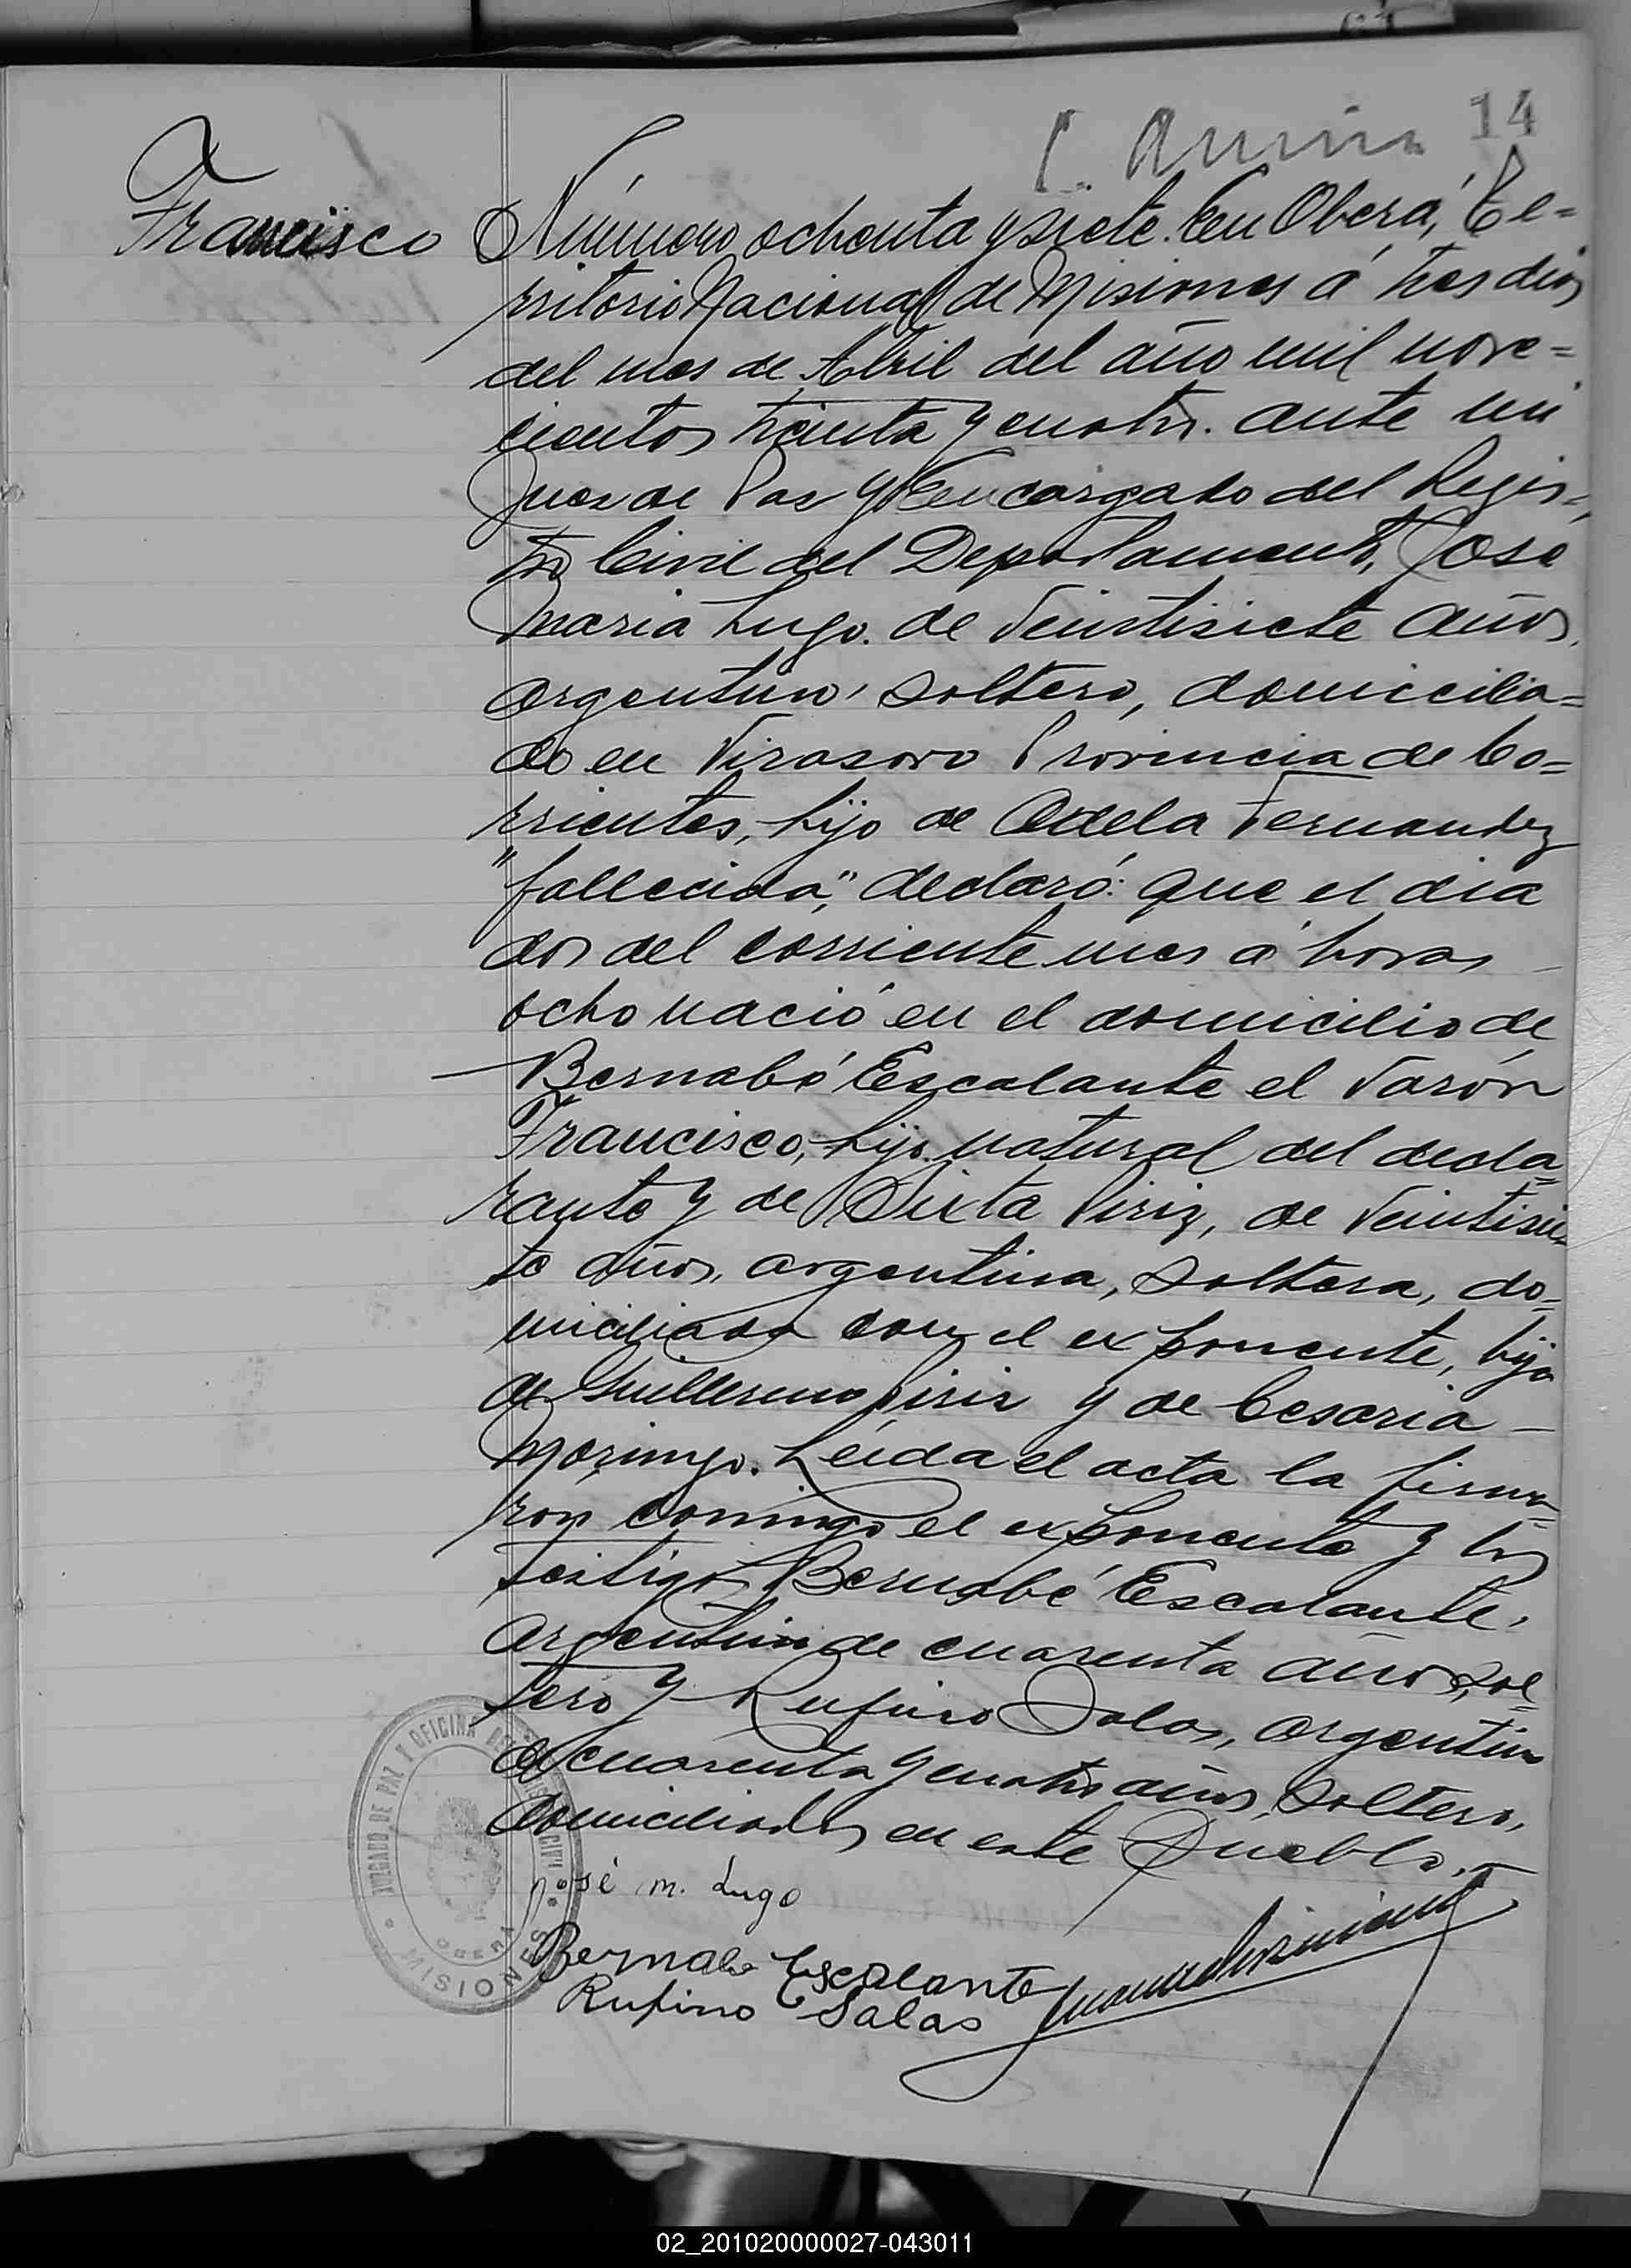 14
Francisco
Número ochenta y siete. En Oberá, Te=
rritorio Nacional de Misiones á tres dias
del mes de Abril del año mil nove=
cientos treinta y cuatro. ante mi
Juez de Paz y Encargado del Regis=
tro Civil del Departamento, José
Maria Lugo. de veintisiete años,
argentino, soltero, domicilia=
do en Virasoro Provincia de Co=
rrientes, hijo de Adela Fernandez
"fallecida", declaró: que el dia
dos del corriente mes á horas
ocho nació en el domicilio de
Bernabé Escalante el varón
Francisco, hijo natural del decla=
rante y de Sixta Piriz, de veintisie=
te años, argentina, soltera, do=
miciliada con el exponente, hija
de Guillermo Piriz y de Cesaria
Moringo. Leída el acta la firma=
ron conmigo el exponente y los
testigos Bernabé Escalante,
argentino de cuarenta años, sol=
tero y Rufino Salas, argentino
de cuarenta y cuatro años, soltero,
domiciliados en este Pueblo.
José M. Lugo
Bernabe Escalante
Rufino Salas
JUZGADO DE PAZ Y OFICINA DEL REGISTRO CIVIL
OBERA
MISIONES
02_201020000027-043011